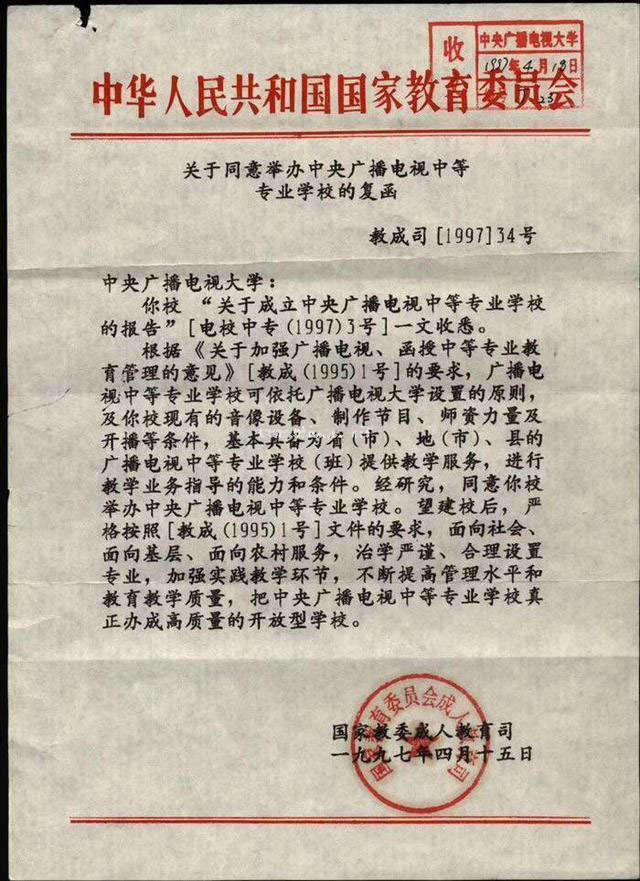 收 中央广播电视大学
1997年4月18日
中华人民共和国国家教育委员会
关于同意举办中央广播电视中等
专业学校的复函
教成司[1997]34号
中央广播电视大学：
你校“关于成立中央广播电视中等专业学校
的报告”[电校中专(1997)3号]一文收悉。
根据《关于加强广播电视、函授中等专业教
育管理的意见》[教成(1995)1号]的要求，广播电
视中等专业学校可依托广播电视大学设置的原则，
及你校现有的音像设备、制作节目、师资力量及
开播等条件，基本具备为省(市)、地(市)、县的
广播电视中等专业学校(班)提供教学服务，进行
教学业务指导的能力和条件。经研究，同意你校
举办中央广播电视中等专业学校。望建校后，严
格按照[教成(1995)1号]文件的要求，面向社会、
面向基层、面向农村服务，治学严谨、合理设置
专业，加强实践教学环节，不断提高管理水平和
教育教学质量，把中央广播电视中等专业学校真
正办成高质量的开放型学校。
国家教育委员会成人教育司
国家教委成人教育司
一九九七年四月十五日